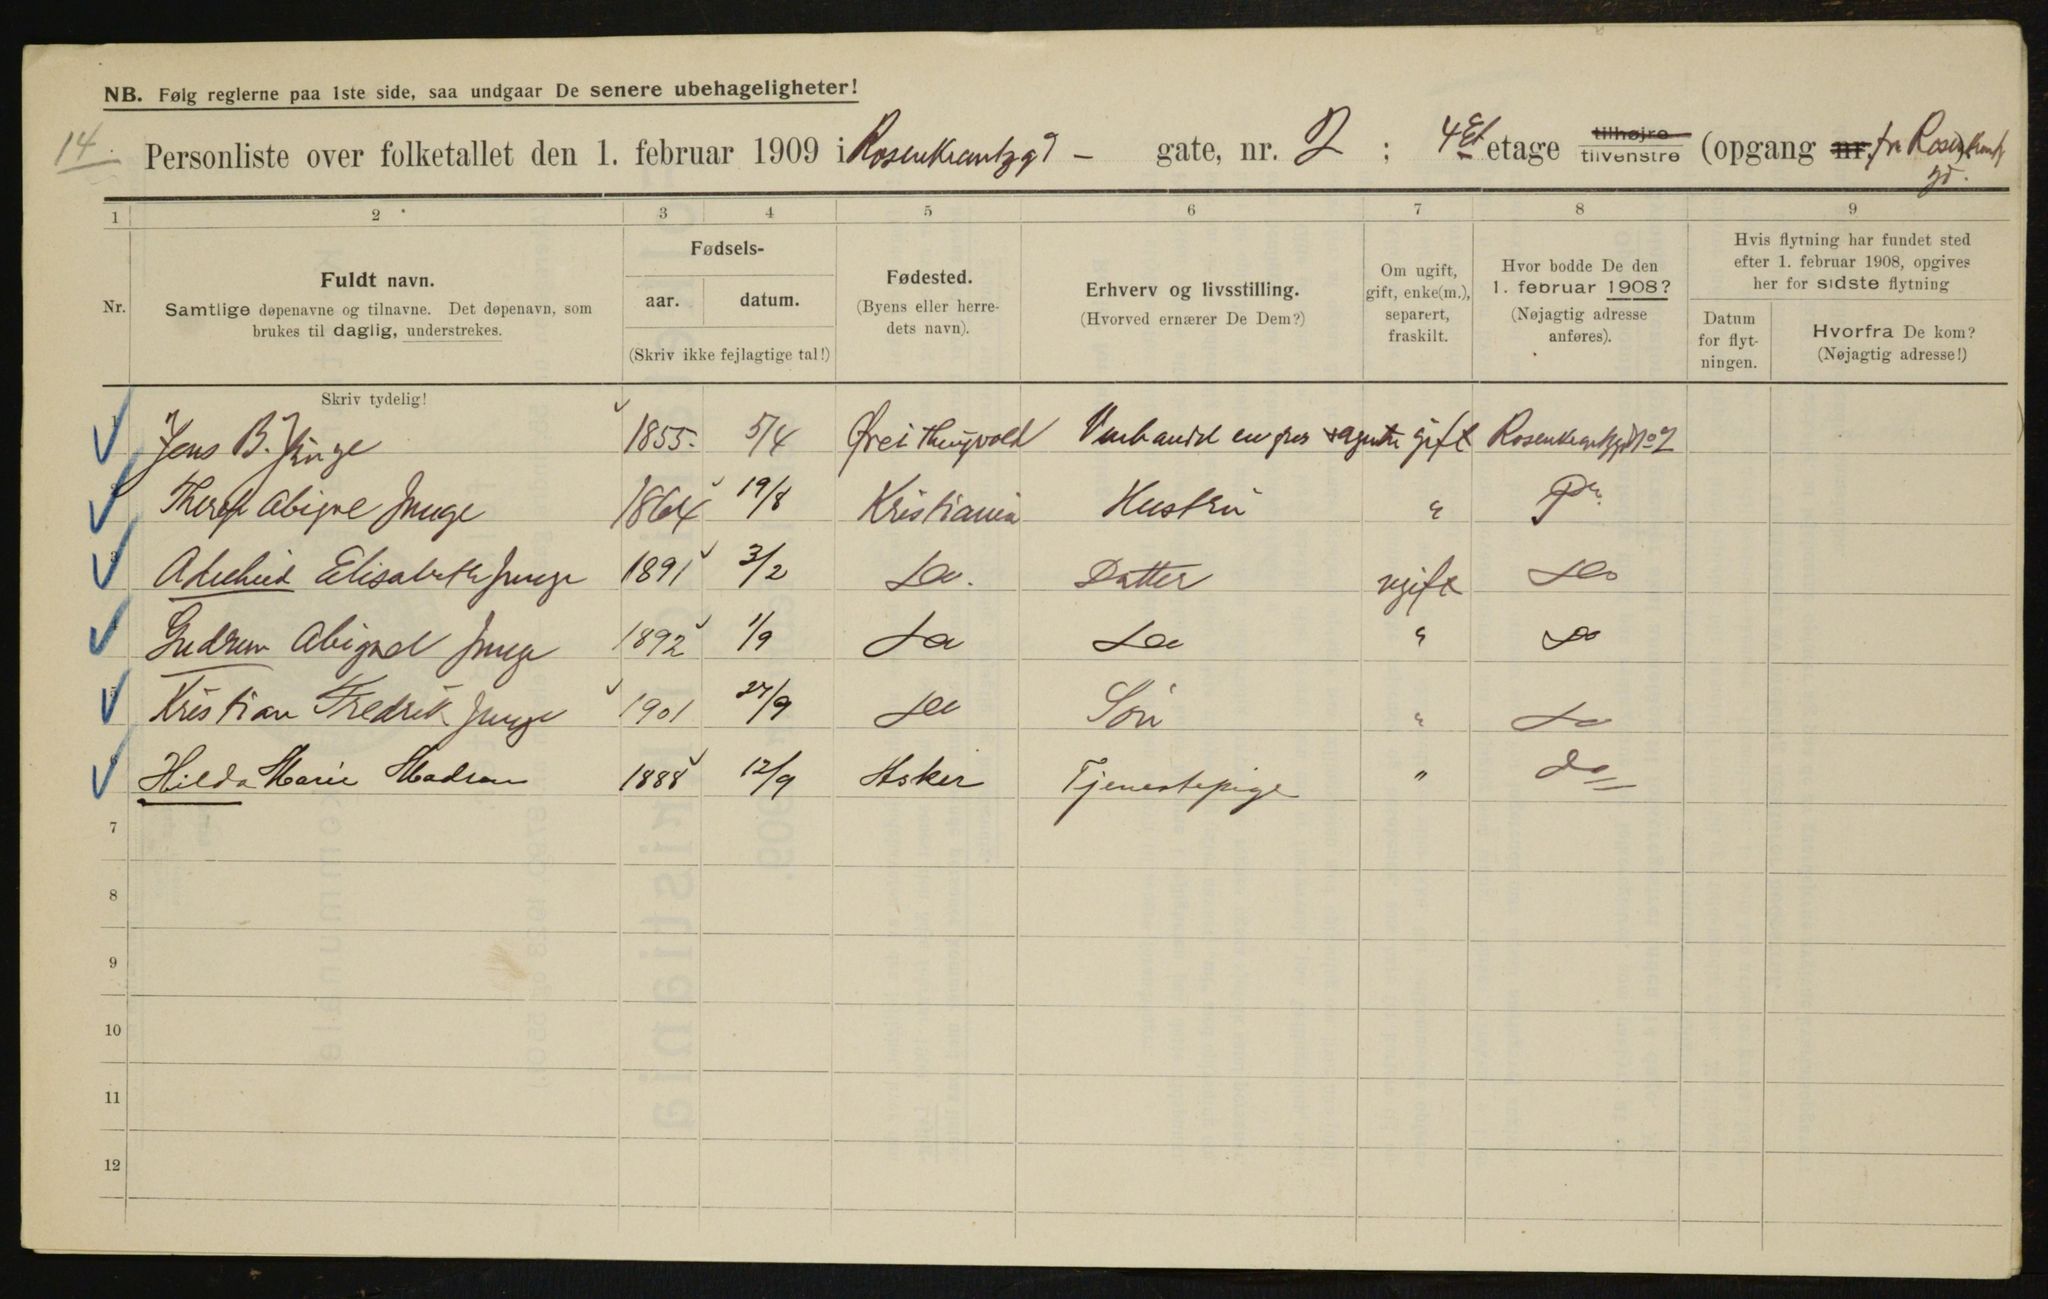 NB. Følg reglerne paa 1ste side, saa undgaar De senere ubehageligheter!
14
Personliste over folketallet den 1. februar 1909 i Rosenkrantzgd - gate, nr. 2 ; 4 Et etage tilhøjre tilvenstre (opgang nr. fra Rosenkrantz gd.
1 2 3 4 5 6 7 8 9
Nr.
Fuldt navn.
Samtlige døpenavne og tilnavne. Det døpenavn, som
brukes til daglig, understrekes.
Fødsels-
aar. datum.
(Skriv ikke fejlagtige tal!)
Fødested.
(Byens eller herre-
dets navn).
Erhverv og livsstilling.
(Hvorved ernærer De Dem?)
Om ugift,
gift, enke(m.),
separert,
fraskilt.
Hvor bodde De den
1. februar 1908?
(Nøjagtig adresse
anføres).
Hvis flytning har fundet sted
efter 1. februar 1908, opgives
her for sidste flytning
Datum
for flyt-
ningen.
Hvorfra De kom?
(Nøjagtig adresse!)
Skriv tydelig!
Jens B. Junge 1855 5/4 en gros agentur gift Rosenkrantzgd No 2
Abigael Junge 1864 19/8 Kristiania Hustru "
3 Adelheid Elisabeth Junge 1891 3/2 do. Datter ugift do
Gudrun Abigael Junge 1892 1/9 do do " do
5 Kristian Fredrik Junge 1901 27/9 do Søn " do
Hilda Marie Madsen 1888 12/9 Asker Tjenestepige " do
7
8
9
10
11
12